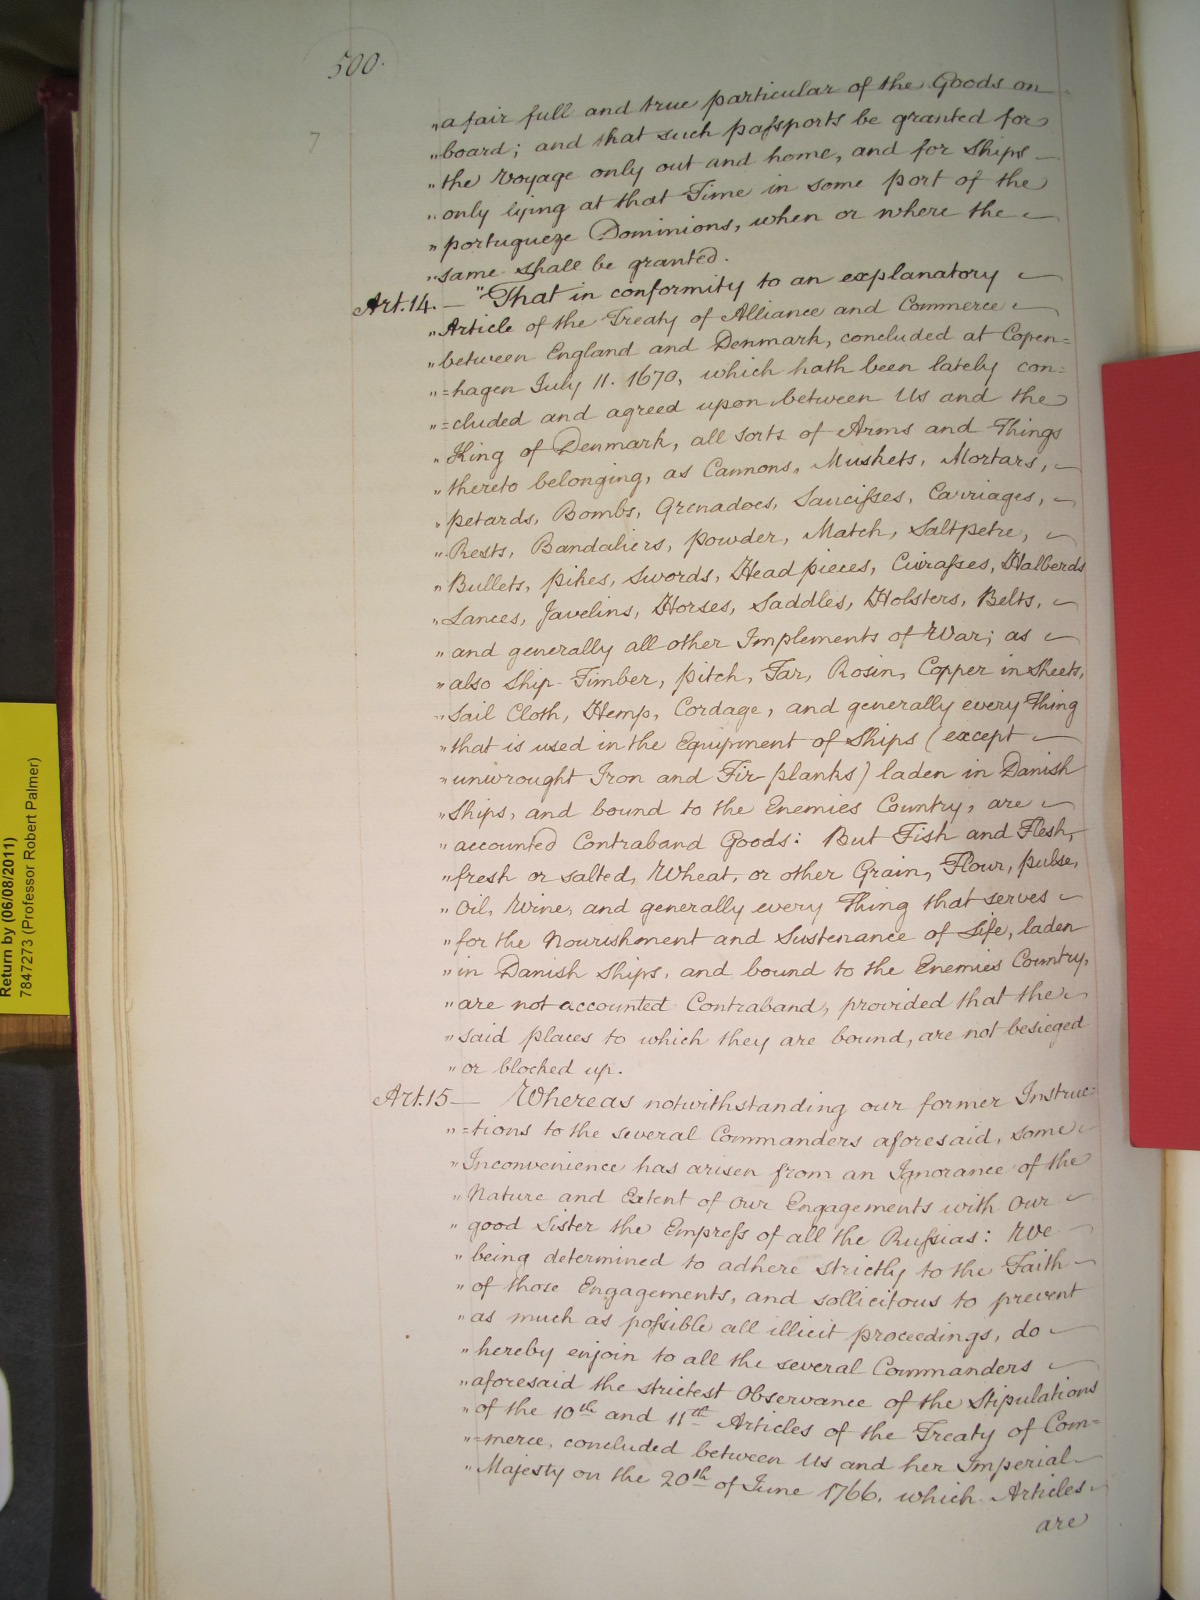 500.
7
"a fair full and true particular of the Goods on
"board; and that such passports be granted for
"the Voyage only out and home, and for Ships
"only lying at that Time in some port of the
"portugueze Dominions, when or where the
"same shall be granted.
Art. 14. — "That in conformity to an explanatory
"Article of the Treaty of Alliance and Commerce
"between England and Denmark, concluded at Copen=
"=hagen July 11. 1670, which hath been lately con=
"=cluded and agreed upon between Us and the
"King of Denmark, all sorts of Arms and Things
"thereto belonging, as Cannons, Muskets, Mortars,
"petards, Bombs, Grenadoes, Saucisses, Carriages,
"Rests, Bandaliers, powder, Match, Saltpetre,
"Bullets, pikes, swords, Head pieces, Cuirasses, Halberds
"Lances, Javelins, Horses, Saddles, Holsters, Belts,
"and generally all other Implements of War; as
"also Ship-Timber, pitch, Tar, Rosin, Copper in sheets,
"Sail Cloth, Hemp, Cordage, and generally every Thing
"that is used in the Equipment of Ships (except
"unwrought Iron and Fir planks) laden in Danish
"Ships, and bound to the Enemies Country, are
"accounted Contraband Goods: But Fish and Flesh,
"fresh or salted, Wheat, or other Grain, Flour, pulse,
"Oil, Wine, and generally every Thing that serves
"for the Nourishment and Sustenance of Life, laden
"in Danish Ships, and bound to the Enemies Country,
"are not accounted Contraband, provided that the
"said places to which they are bound, are not besieged
"or blocked up.
Art. 15 — Whereas notwithstanding our former Instruc=
"=tions to the several Commanders aforesaid, some
"Inconvenience has arisen from an Ignorance of the
"Nature and Extent of Our Engagements with Our
"good Sister the Empress of all the Russias: We
"being determined to adhere strictly to the Faith
"of those Engagements, and sollicitous to prevent
"as much as possible all illicit proceedings, do
"hereby enjoin to all the several Commanders
"aforesaid the strictest Observance of the Stipulations
"of the 10th and 11th Articles of the Treaty of Com=
"=merce, concluded between Us and her Imperial
"Majesty on the 20th of June 1766. which Articles
are
Return by (06/08/2011)
7847273 (Professor Robert Palmer)